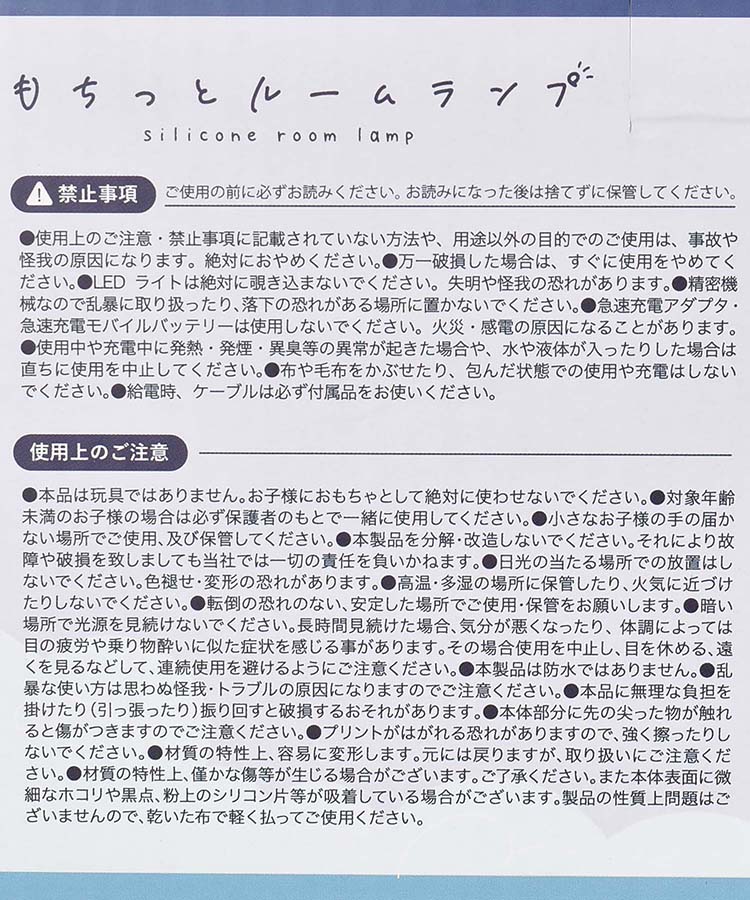 もちっとルームランプ
silicone room lamp
禁止事項 ご使用の前に必ずお読みください。お読みになった後は捨てずに保管してください。
●使用上のご注意・禁止事項に記載されていない方法や、用途以外の目的でのご使用は、事故や
怪我の原因になります。絶対におやめください。●万一破損した場合は、すぐに使用をやめてく
ださい。●LED ライトは絶対に覗き込まないでください。失明や怪我の恐れがあります。●精密機
械なので乱暴に取り扱ったり、落下の恐れがある場所に置かないでください。●急速充電アダプタ・
急速充電モバイルバッテリーは使用しないでください。火災・感電の原因になることがあります。
●使用中や充電中に発熱・発煙・異臭等の異常が起きた場合や、水や液体が入ったりした場合は
直ちに使用を中止してください。●布や毛布をかぶせたり、包んだ状態での使用や充電はしない
でください。●給電時、ケーブルは必ず付属品をお使いください。
使用上のご注意
●本品は玩具ではありません。お子様におもちゃとして絶対に使わせないでください。●対象年齢
未満のお子様の場合は必ず保護者のもとで一緒に使用してください。●小さなお子様の手の届か
ない場所でご使用、及び保管してください。●本製品を分解・改造しないでください。それにより故
障や破損を致しましても当社では一切の責任を負いかねます。●日光の当たる場所での放置はし
ないでください。色褪せ・変形の恐れがあります。●高温・多湿の場所に保管したり、火気に近づけ
たりしないでください。●転倒の恐れのない、安定した場所でご使用・保管をお願いします。●暗い
場所で光源を見続けないでください。長時間見続けた場合、気分が悪くなったり、体調によっては
目の疲労や乗り物酔いに似た症状を感じる事があります。その場合使用を中止し、目を休める、遠
くを見るなどして、連続使用を避けるようにご注意ください。●本製品は防水ではありません。●乱
暴な使い方は思わぬ怪我・トラブルの原因になりますのでご注意ください。●本品に無理な負担を
掛けたり（引っ張ったり）振り回すと破損するおそれがあります。●本体部分に先の尖った物が触れ
ると傷がつきますのでご注意ください。●プリントがはがれる恐れがありますので、強く擦ったりし
ないでください。●材質の特性上、容易に変形します。元には戻りますが、取り扱いにご注意くださ
い。●材質の特性上、僅かな傷等が生じる場合がございます。ご了承ください。また本体表面に微
細なホコリや黒点、粉上のシリコン片等が吸着している場合がございます。製品の性質上問題はご
ざいませんので、乾いた布で軽く払ってご使用ください。